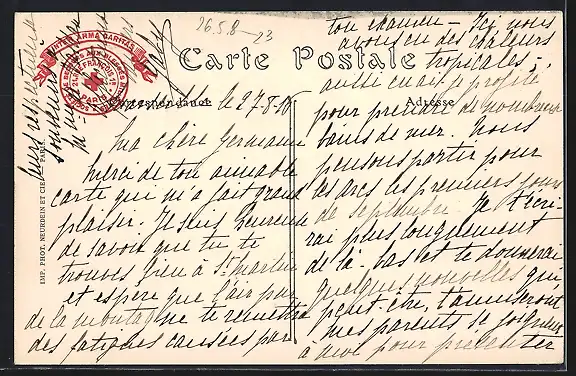 26.5.8-23
INTER ARMA CARITAS
PARIS
Carte Postale
Correspondance
Adresse
IMP. PHOT. NEURDEIN ET CIE PARIS.
le 27-8-
Ma chère Germaine
Merci de ton aimable
carte qui m'a fait grand
plaisir. Je suis heureuse
de savoir que tu te
trouves bien à St Martin
et espère que l'air pur
de la montagne te remettra
des fatigues causées par
ton examen — Ici nous
avons eu des chaleurs
tropicales -
aussi en ai-je profité
pour prendre de nombreux
bains de mer. Nous
pensons partir pour
les arcs les premiers jours
de septembre. Je t'écri-
rai plus longuement
de là-bas et te donnerai
quelques nouvelles qui,
peut-être, t'amuseront
mes parents se joignent
à moi pour présenter
leurs respectueux